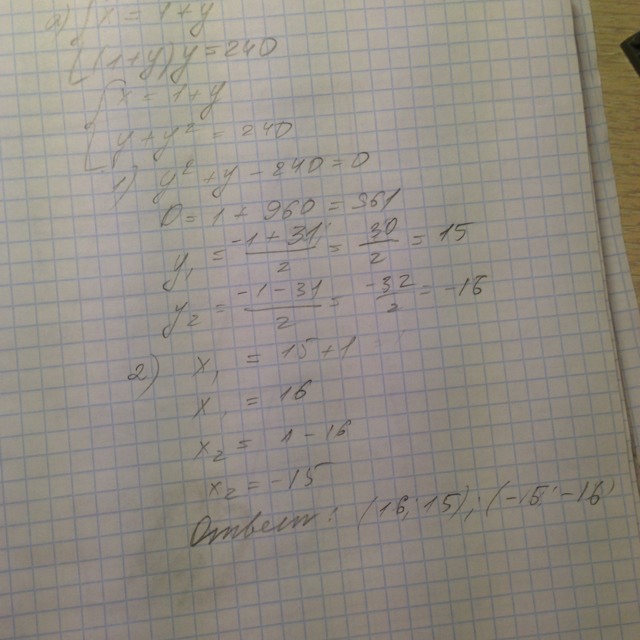 x = 1+y
(1+y)y = 240
x = 1+y
y+y² = 240
1) y²+y-240=0
D = 1+960 = 961
y₁ = \frac{-1+31}{2} = \frac{30}{2} = 15
y₂ = \frac{-1-31}{2} = \frac{-32}{2} = -16
2) x₁ = 15+1
x₁ = 16
x₂ = 1-16
x₂ = -15
Ответ: (16;15); (-15;-16)